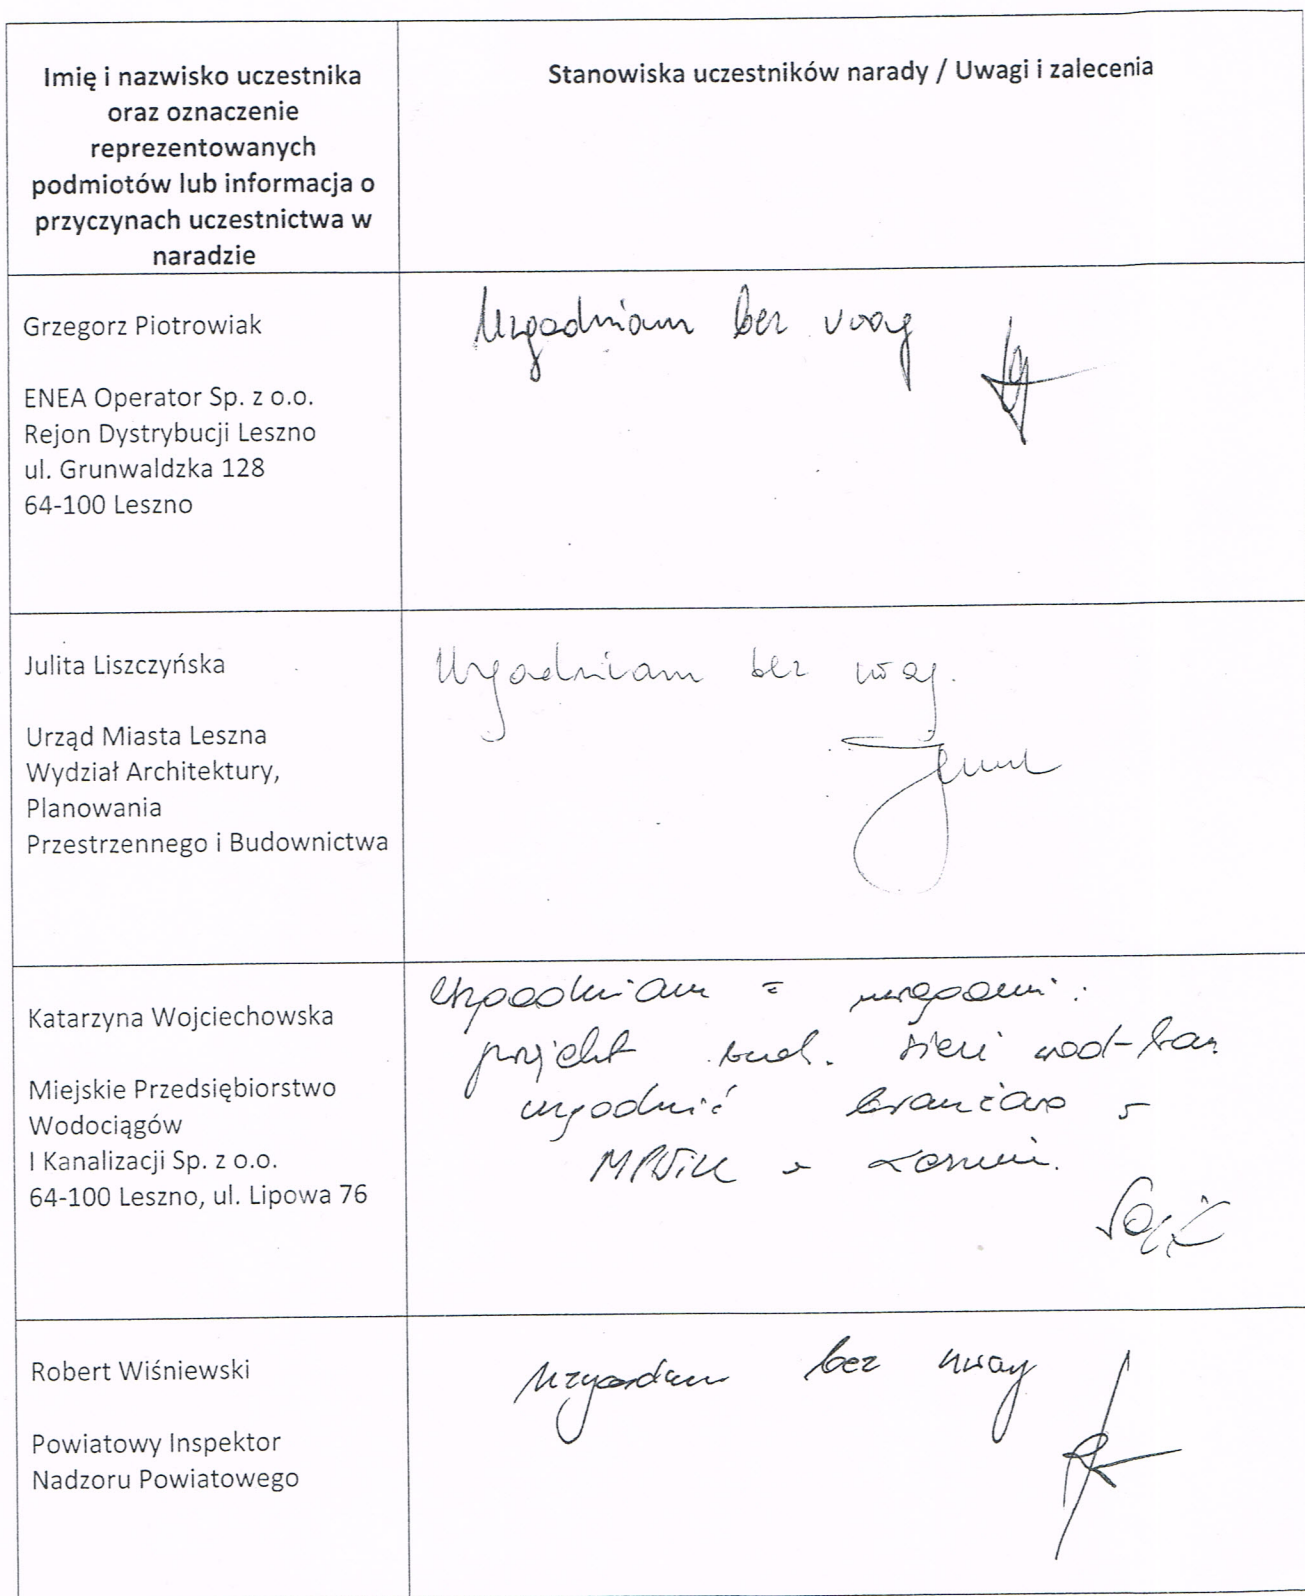 Imię i nazwisko uczestnika
oraz oznaczenie
reprezentowanych
podmiotów lub informacja o
przyczynach uczestnictwa w
naradzie
Stanowiska uczestników narady / Uwagi i zalecenia
Grzegorz Piotrowiak
ENEA Operator Sp. z o.o.
Rejon Dystrybucji Leszno
ul. Grunwaldzka 128
64-100 Leszno
Uzgadniam bez uwag
Julita Liszczyńska
Urząd Miasta Leszna
Wydział Architektury,
Planowania
Przestrzennego i Budownictwa
Uzgadniam bez uwag.
Katarzyna Wojciechowska
Miejskie Przedsiębiorstwo
Wodociągów
I Kanalizacji Sp. z o.o.
64-100 Leszno, ul. Lipowa 76
Uzgadniam z uwagami:
projekt bud. sieci wod-kan
uzgodnić branżowo z
MPWiK w Lesznie.
Robert Wiśniewski
Powiatowy Inspektor
Nadzoru Powiatowego
uzgadniam bez uwag